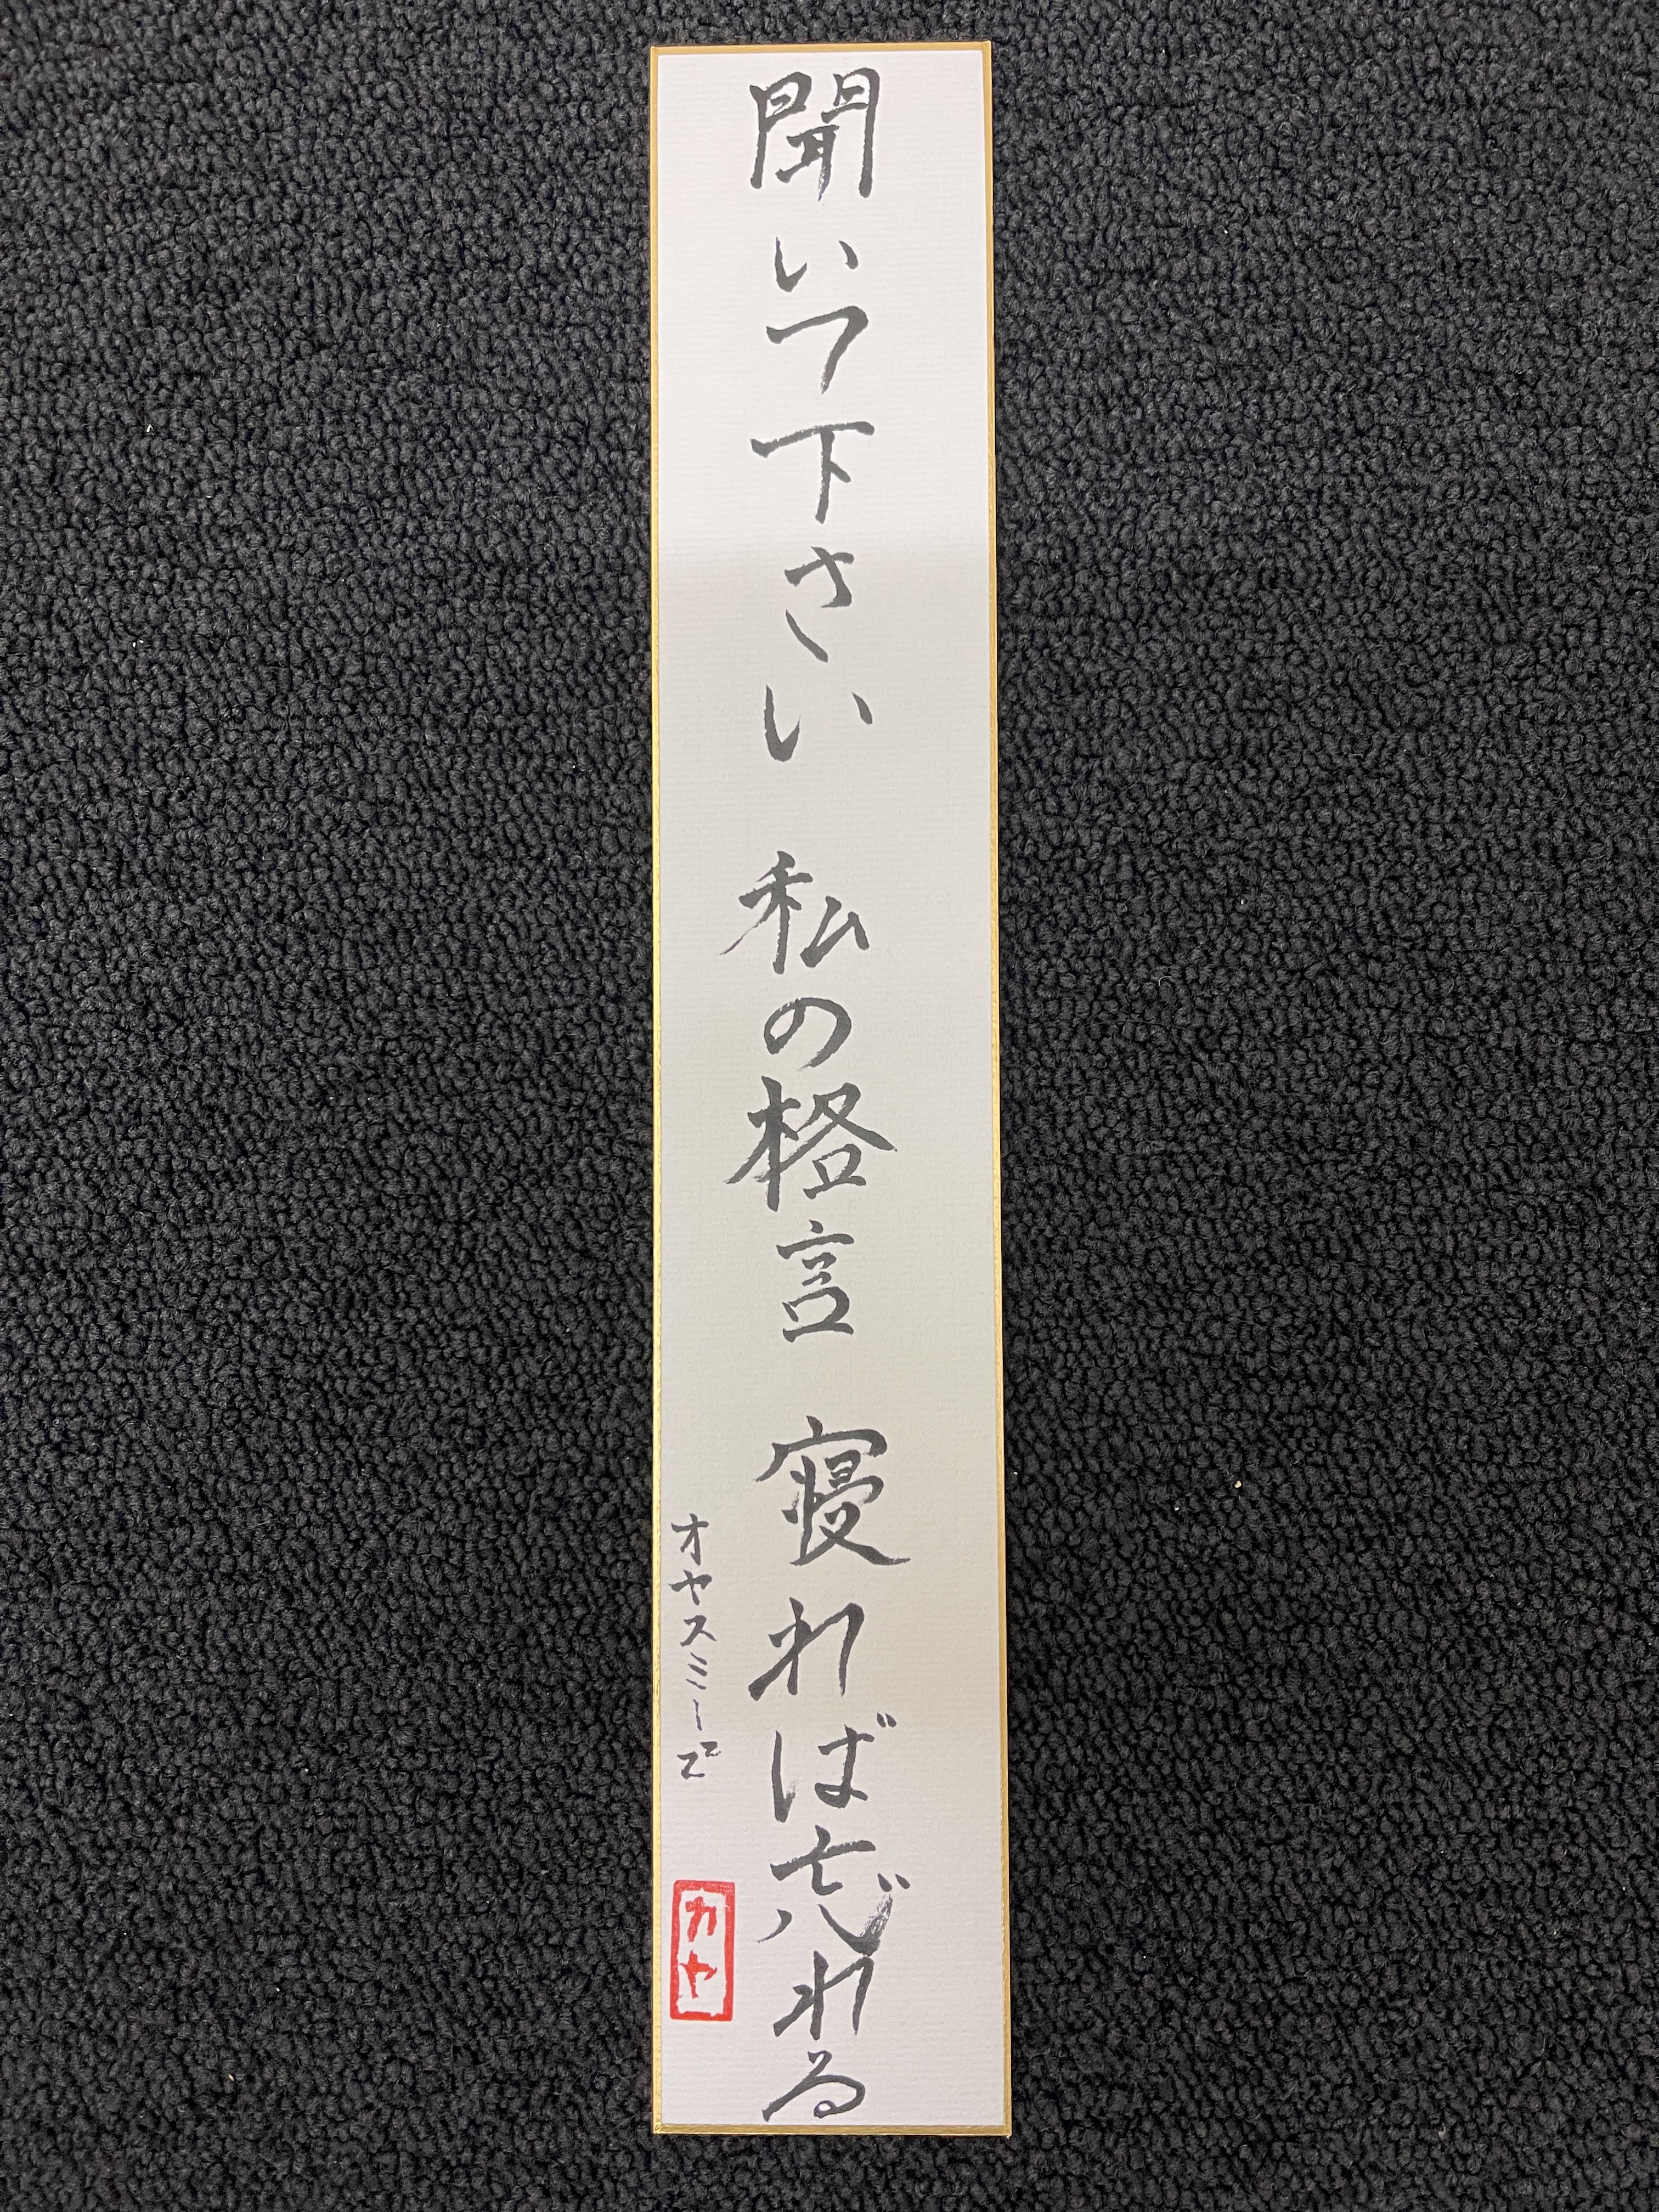 聞いて下さい 私の格言 寝れば忘れる
オヤスミーZZ
カヤ